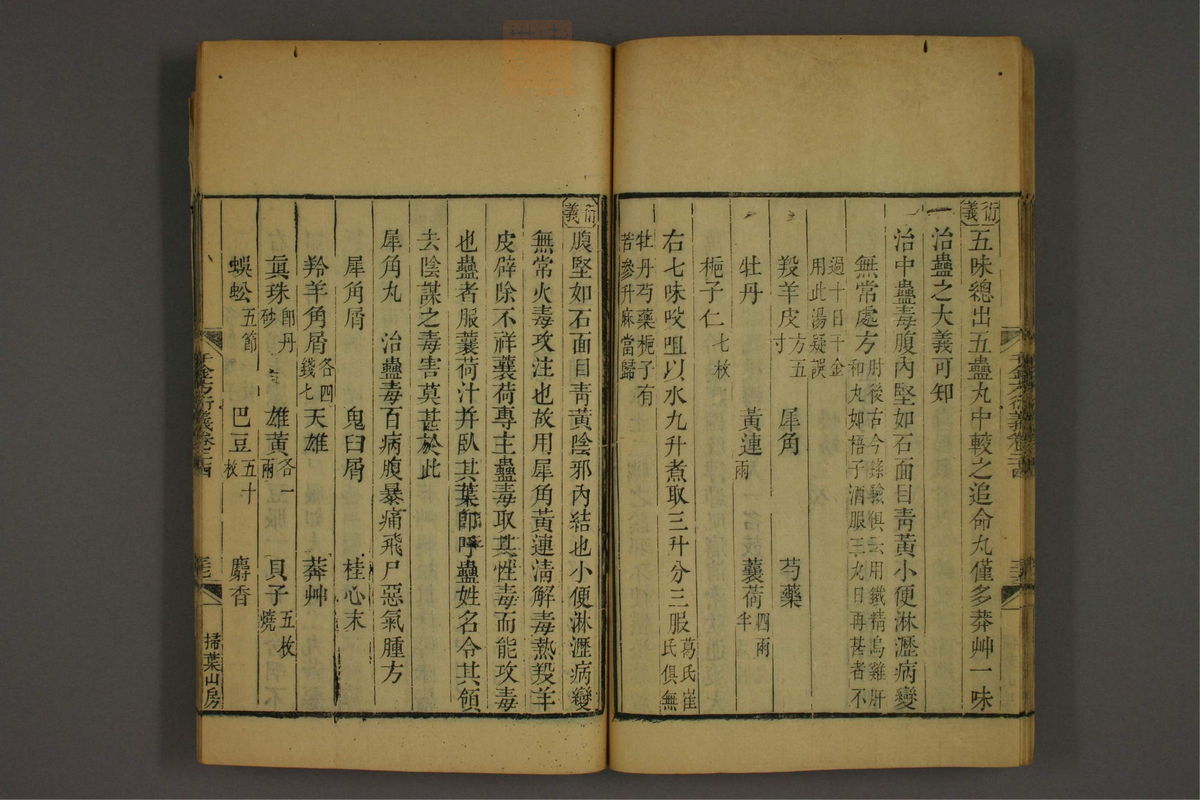 衍義 五味總出五蠱丸中較之追命丸僅多莽艸一味
治蠱之大義可知
治中蠱毒腹內堅如石面目靑黃小便淋瀝病變
無常處方 肘後古今錄驗俱云用鐵精烏雞肝
和丸如梧子酒服三丸日再甚者不
過十日十金
用此湯疑誤
羖羊皮 方五寸 犀角 芍藥
牡丹 黃連 蘘荷 四兩半
梔子仁 七枚
右七味㕮咀以水九升煮取三升分三服 葛氏崔
氏俱無
牡丹芍藥梔子有
苦參升麻當歸
衍義 腹堅如石面目靑黃陰邪內結也小便淋瀝病變
無常火毒攻注也故用犀角黃連淸解毒熱羖羊
皮辟除不祥蘘荷專主蠱毒取其性毒而能攻毒
也蠱者服蘘荷汁幷臥其葉卽呼蠱姓名令其領
去陰謀之毒害莫甚於此
犀角丸 治蠱毒百病腹暴痛飛尸惡氣腫方
犀角屑 鬼臼屑 桂心末
羚羊角屑 各四錢七 天雄 莽艸
眞珠 卽丹砂 雄黃 各一兩 貝子 五枚燒
蜈蚣 五節 巴豆 五十枚 麝香
掃葉山房